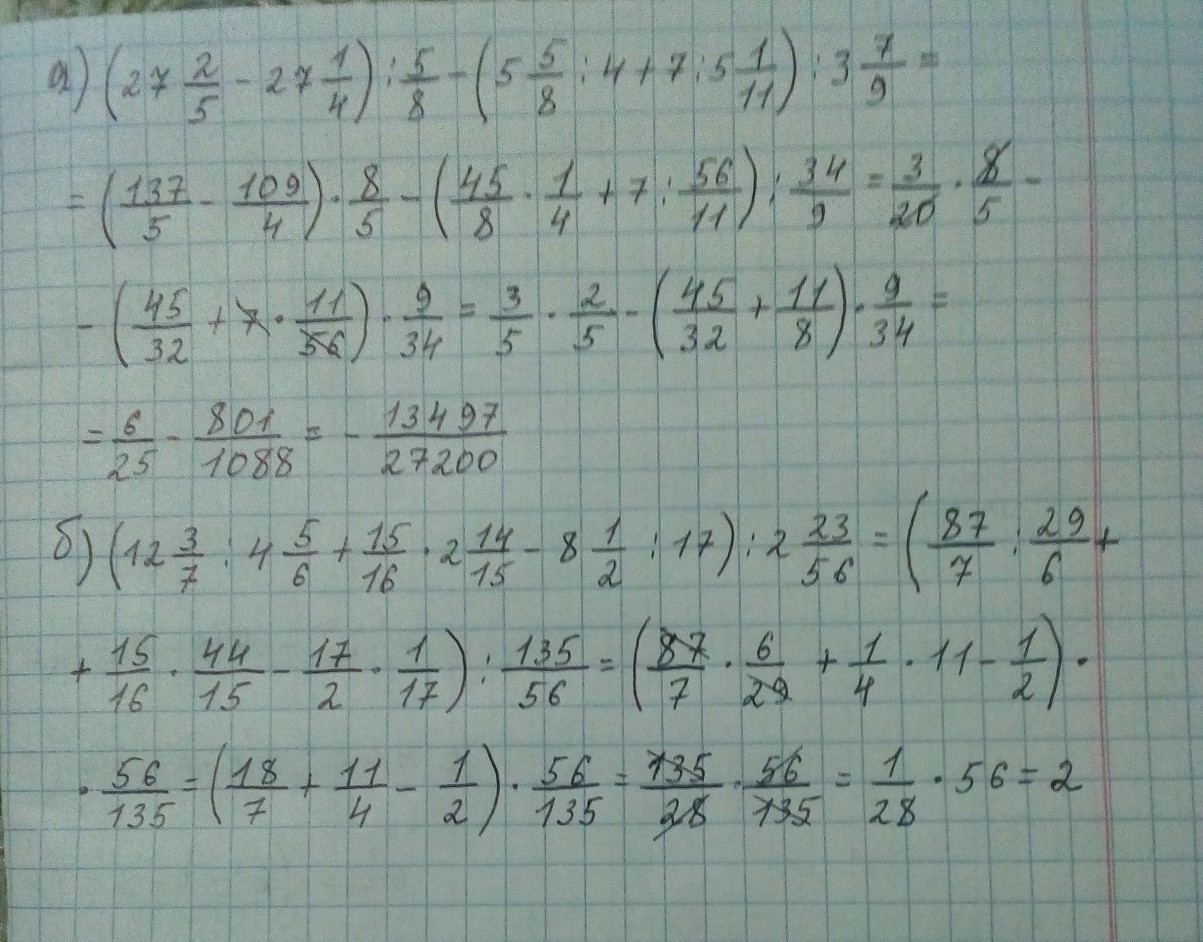 а) (27 2/5 - 27 1/4) : 5/8 - (5 5/8 : 4 + 7 : 5 1/11) : 3 7/9 =
= (137/5 - 109/4) · 8/5 - (45/8 · 1/4 + 7 : 56/11) : 34/9 = 3/20 · 8/5 -
- (45/32 + 7 · 11/56) · 9/34 = 3/5 · 2/5 - (45/32 + 11/8) · 9/34 =
= 6/25 - 801/1088 = - 13497/27200
б) (12 3/7 : 4 5/6 + 15/16 · 2 14/15 - 8 1/2 : 17) : 2 23/56 = (87/7 : 29/6 +
+ 15/16 · 44/15 - 17/2 · 1/17) : 135/56 = (87/7 · 6/29 + 1/4 · 11 - 1/2) ·
· 56/135 = (18/7 + 11/4 - 1/2) · 56/135 = 135/28 · 56/135 = 1/28 · 56 = 2